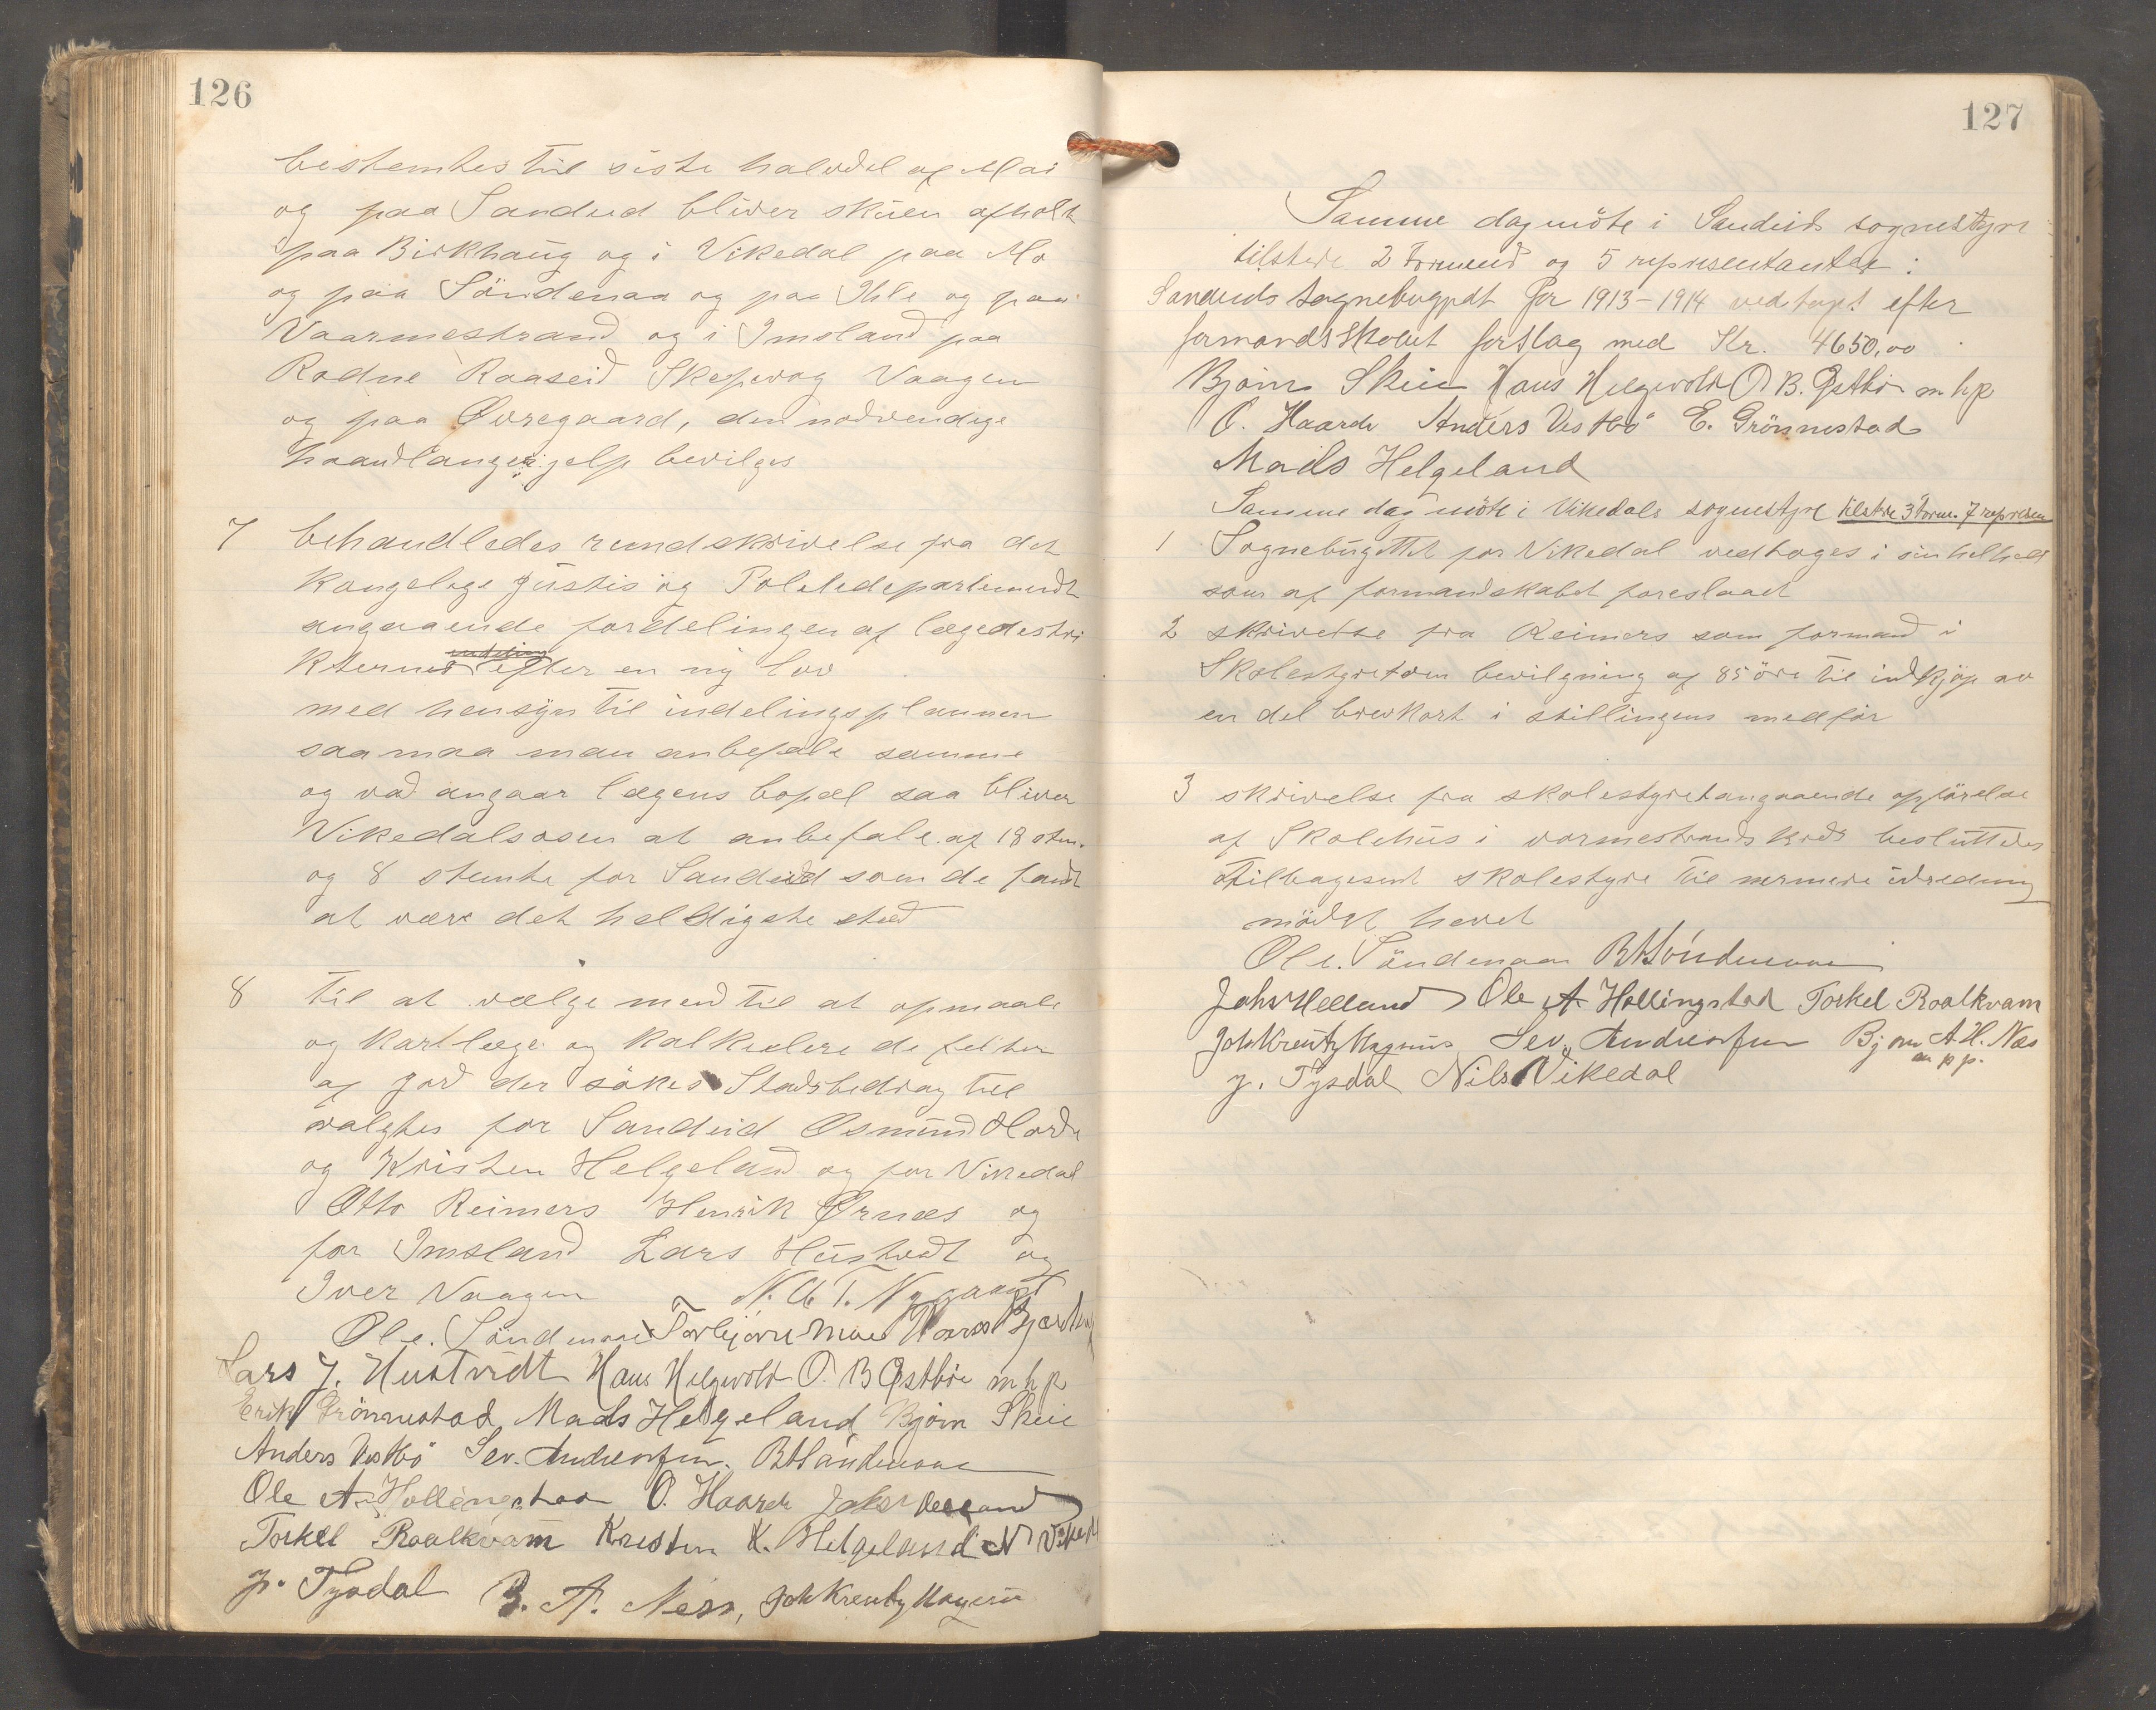 126
bestemtes til siste halvdel af Mai
og paa Sandeid bliver skuen afholt
paa Birkhaug og i Vikedal paa Mo
og paa Söndenaa og paa Ihle og paa
Vaarmestrand og i Imsland paa
Rodne Raaseid Skepevog Vaagen
og paa Øvregaard, den nødvendige
haandlangerhjelp bevilges
7 behandledes rundskrivelse fra det
kongelige Justis og Politidepartementdt
angaaende fordelingen af lægedestri
kternes efter en ny lov
med hensyn til indelingsplannen
saa maa man anbefale samme
og vad angaar lægens bopæl saa bliver
Vikedalsosen at anbefale af 18 stm.
og 8 stemte for Sandeid som de fandt
at være det heldigste sted
8 Til at vælge mend til at opmaale
og kartlæge og kalkulere de felter
af jord der sökes Statsbedrag til
valgtes for Sandeid Osmund Horde
og Kristen Helgeland og for Vikedal
Otto Reimers Henrik Ørnæs og
for Imsland Lars Hustvedt og
Iver Vaagen N. A. T. Nygaard
Ole. Söndenaa Torbjörn Moe
Lars J. Hustvedt Hans Helgevold O. B Østbö m h p
Erik Grönnestad Mads Helgeland Bjørn Skeie
Anders Vestbö Sev. Andreassen. B H Söndenaa
Ole A Hollingstad O. Haarde Johs Helland
Torkel Roalkvam Kristen K. Helgeland N Vikedal
J. Tysdal B. A. Ness, Joh Kreutz Magnus
127
Samme dag möte i Sandeids sognestyre
tilstede 2 Formend og 5 representanter :
Sandeids sognebugedt for 1913-1914 vedtaget efter
formandsskabet forslag med Kr. 4650,00
Bjørn Skeie Hans Helgevold O B. Østbö m h p
O. Haarde Anders Vestbö E. Grönnestad
Mads Helgeland
Samme dag möte i Vikedals sognestyre tilstde 3 Form. 7 represen
1 Sognebugettet for Vikedal vedtoges i sin helhed
som af formandskabet foreslaaet
2 skrivelse fra Reimers som formand i
Skolestyret om bevilgning af 85 öre til indkjöp av
en del brevkort i stillingens medför
3 skrivelse fra skolestyret angaaende opförelse
af Skolehus i vormestrands kreds besluttedes
tilbagesent skolestyre til nermere udredning
mödet hevet
Ole. Söndenaa B H Söndenaa
Johs Helland Ole A Hollingstad Torkel Roalkvam
Joh Kreutz Magnus Sev. Andreassen Bjørn A. H. Næs
m p p.
J. Tysdal Nils Vikedal